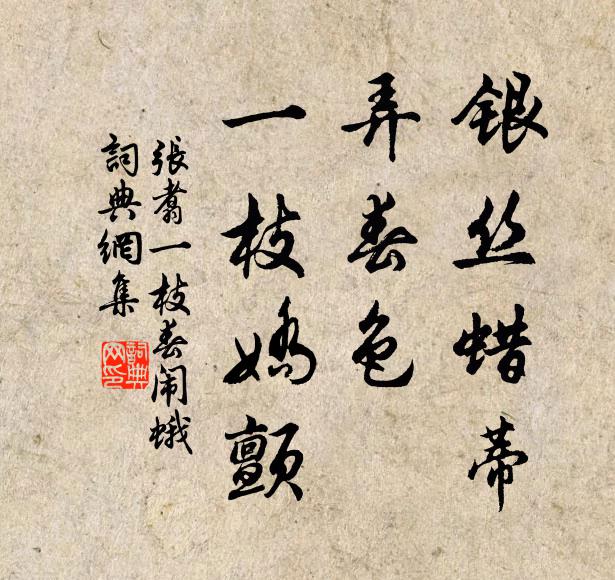 银丝蜡蒂
弄春色
一枝娇颤
張翥一枝春闹蛾
詞典網集
詞典
网印